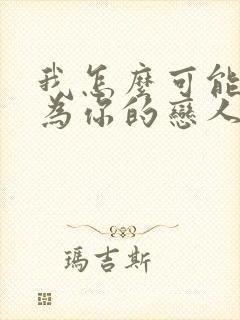 我怎麼可能
為你的戀人
瑪吉斯